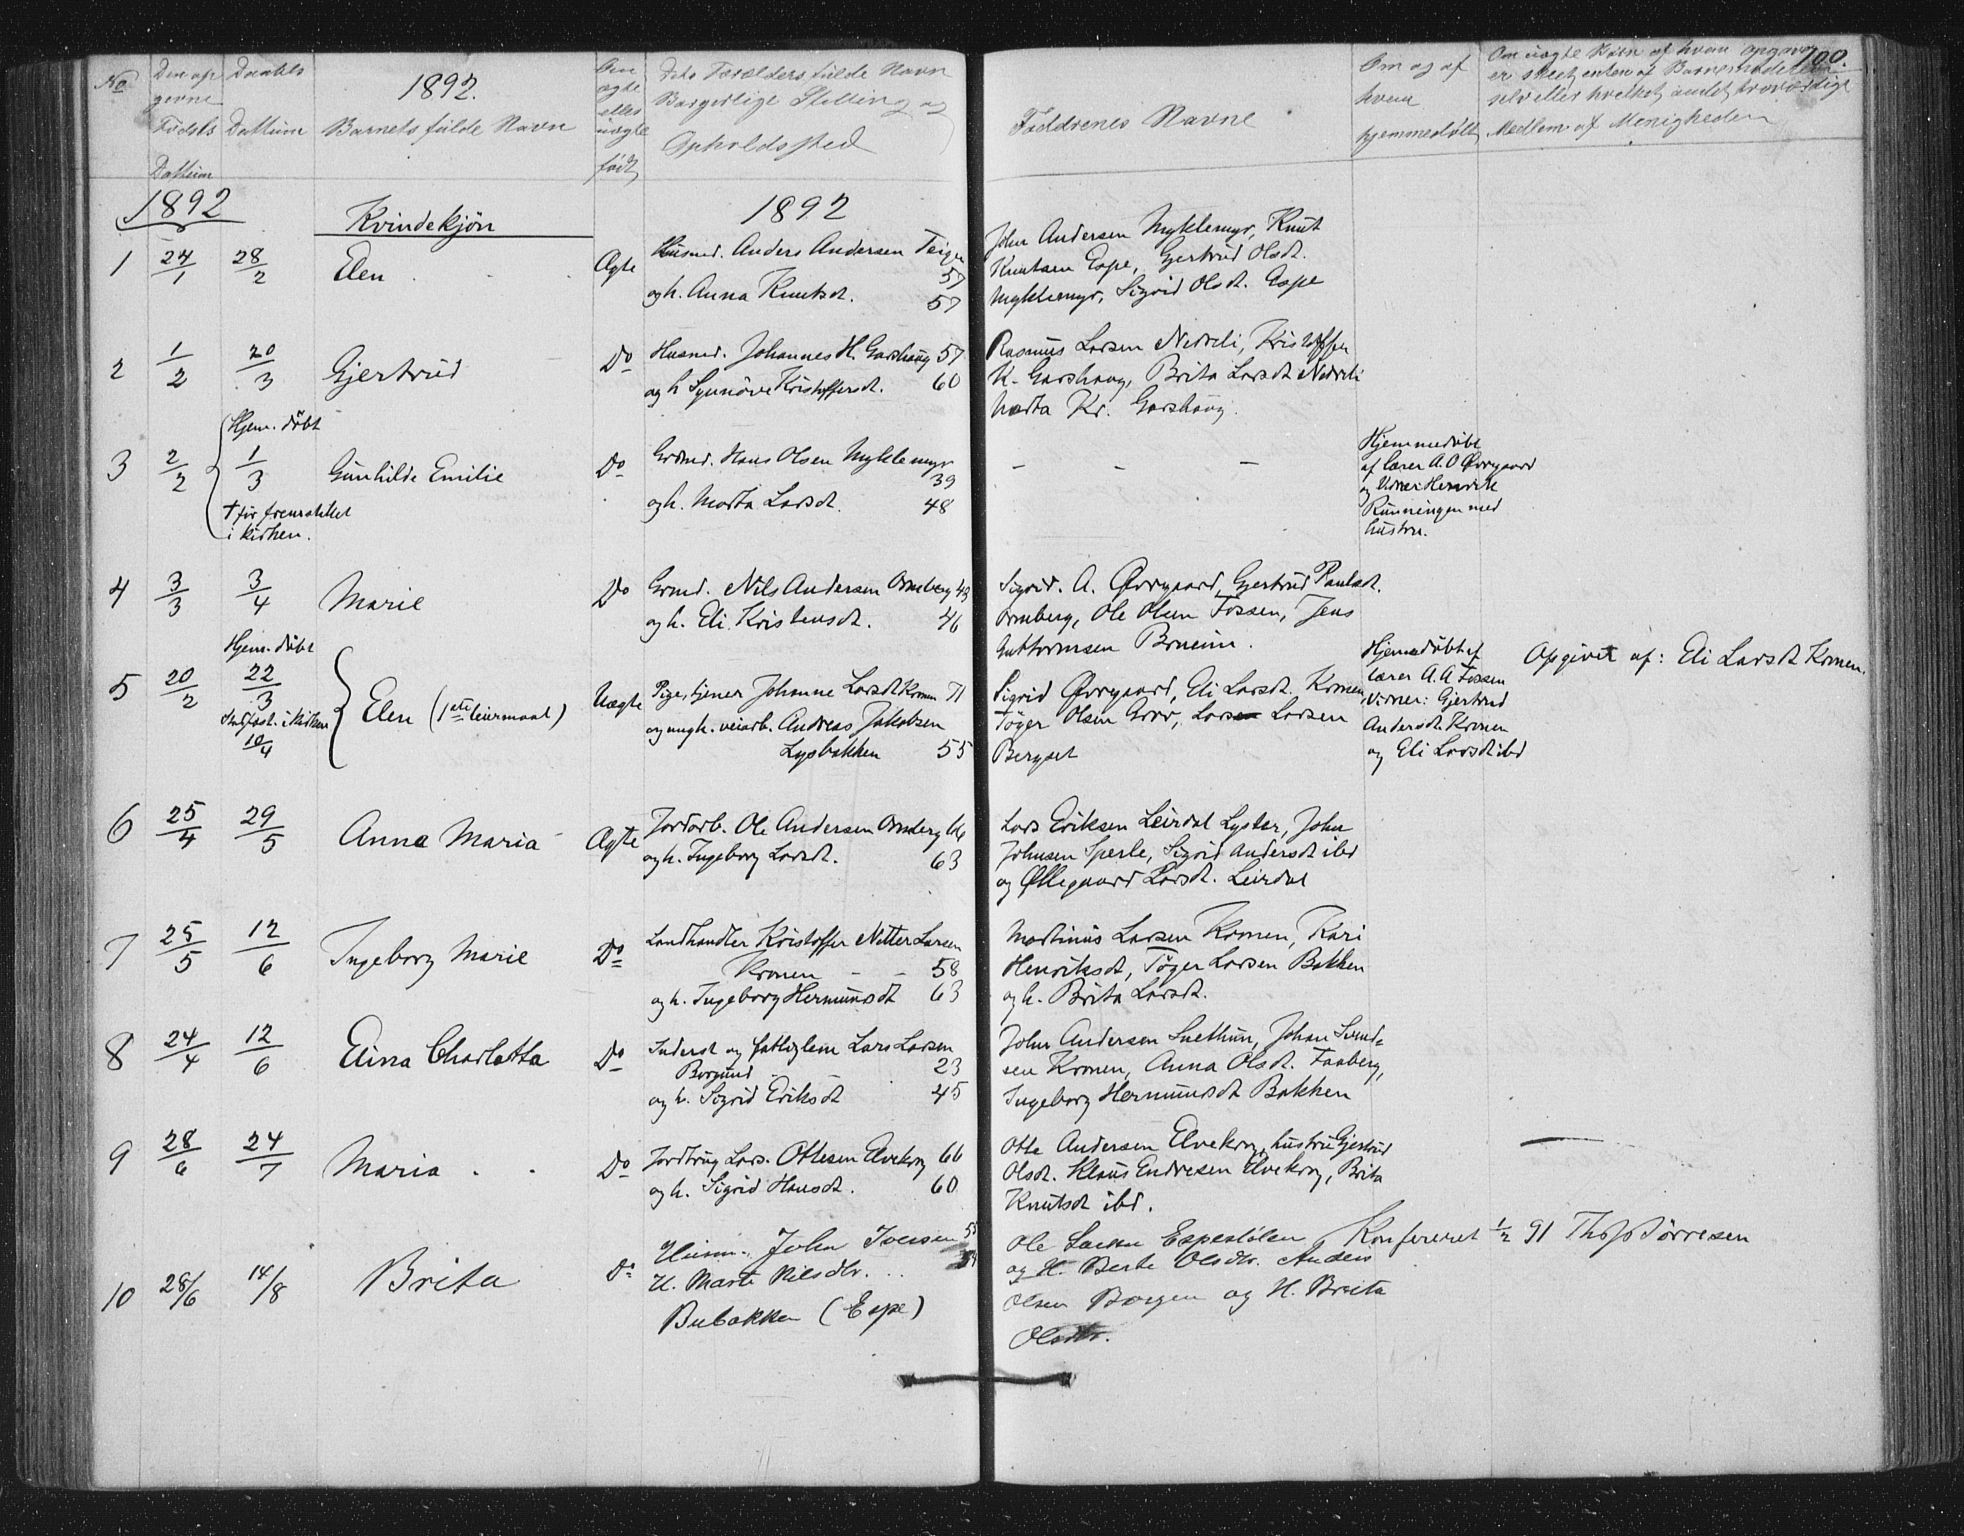 100.
No
Den op
givne
Fødsels
Dattum
Daabs
Dattum
1892.
Barnets fulde Navn
Om
ægte
eller
uægte
født
Dets Forældres fulde Navn
Borgerlige Stilling og
Opholdssted
Faddrenes Navne
Om og af
hvem
hjemmedøbt
Om uægte Børn af hvem opgaven
er skeet enten af Barnemoderen
selv eller hvilket andet troværdigt
Medlem af Menigheden
1892
Kvindekjøn
1892
1 24/1 28/2 Elen Ægte
Husmd. Anders Andersen Teigen 57
og h. Anna Knutsdt. 57
John Andersen Myklemyr, Knut
Knutsen Espe, Gjertrud Olsdt.
Myklemyr, Sigrid Olsdt. Espe
2 1/2 20/3 Gjertrud Do
Husmd. Johannes H. Garshaug 57
og h Synnøve Kristoffersdt. 60
Rasmus Larsen Nedreli, Kristoffer
K. Garshaug, Brita Larsdt Nedreli
Marta Kr. Garshaug.
3 2/2 Hjem. døbt 1/3
† før fremstillet
i kirken.
Gunhilde Emilie Do
Grdmd. Hans Olsen Myklemyr 39
og h. Marta Larsdt. 48
– – –
Hjemmedøbt
af lærer A. O Øvrgaard
og Henrik
Rünningen med
hustru.
4 3/3 3/4 Marie Do
Grmd. Nils Andersen Ormberg 43
og h. Eli Kristensdt. 46
Sigrid. A. Øvrgaard, Gjertrud Paulsdt.
Ormberg, Ole Olsen Fossen, Jens
Guttormsen Brueim.
5 20/2 Hjem. døbt 22/3
i kirken
10/4
Elen (1ste leiermaal) Uægte
Pige, tjener Johanne Larsdt Kronen 71
og ungk. veiarb. Andreas Jakobsen
Lysbakken 55
Sigrid Øvrgaard, Eli Larsdt. Kronen,
Tøger Olsen Grov, Lars Larsen
Bergset
Hjemmedøbt af
lærer A. A Fossen
Vidner: Gjertrud
Andersdt. Kronen
og Eli Larsdt ibd
Opgivet af: Eli Larsdt Kronen.
6 25/4 29/5 Anna Maria Ægte
Jordarb. Ole Andersen Ormberg 66
og h. Ingeborg Larsdt. 63
Lars Eriksen Leirdal Lyster, John
Johnsen Sperle, Sigrid Andersdt ibd
og Øllegaard Larsdt. Leirdal
7 25/5 12/6 Ingeborg Marie Do
Landhandler Kristoffer Nitter Larsen
Kronen – – 58
og h. Ingeborg Hermundsdt 63
Martinus Larsen Kronen, Kari
Henriksdt, Tøger Larsen Bakken
og h. Brita Larsdt.
8 24/4 12/6 Elina Charlotta Do
Inderst og fattiglem Lars Larsen
Borgund 23
og h. Sigrid Eriksdt 45
John Andersen Snethun, Johan Svend-
sen Kronen, Anna Olsdt. Faaberg,
Ingeborg Hermundsdt Bakken
9 28/6 24/7 Maria Do
Jordbrug Lars. Ottesen Elvekrog 66
og h. Sigrid Hansdt. 60
Otte Andersen Elvekrog, hustru Gjertrud
Olsdt. Klaus Endresen Elvekrog, Brita
Knutsdt ibd.
10 28/6 14/8 Brita Do
Husm. John Iversen 55
H. Marte Nilsdtr.
Bubakken (Espe)
Ole Larsen Espestølen
og H. Berte Olsdtr. Anders
Olsen Borgen og H. Brita
Olsdtr.
Konfereret ½ 91 Ths Tørresen